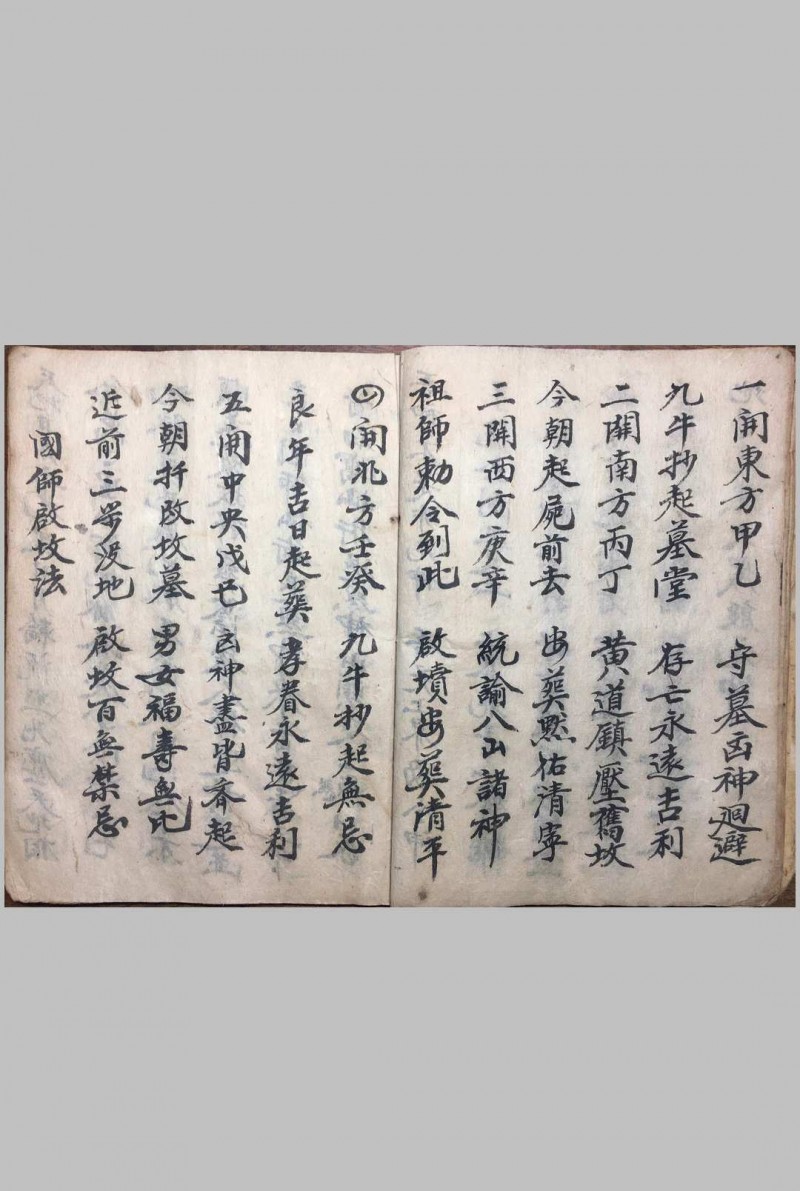 一開東方甲乙　守墓凶神迴避
九牛抄起墓堂　存亡永遠吉利
二開南方丙丁　黄道鎮壓舊坟
今朝起屍前去　安葬黙佑清寧
三開西方庚辛　統諭八山諸神
祖師勅令到此　啟墳安葬清平
四開北方壬癸　九牛抄起無忌
良年吉日起葬　孝眷永遠吉利
五開中央戊己　凶神盡皆齊起
今朝扦改坟墓　男女福壽無比
近前三步沒地　啟坟百無禁忌
國師啟坟法